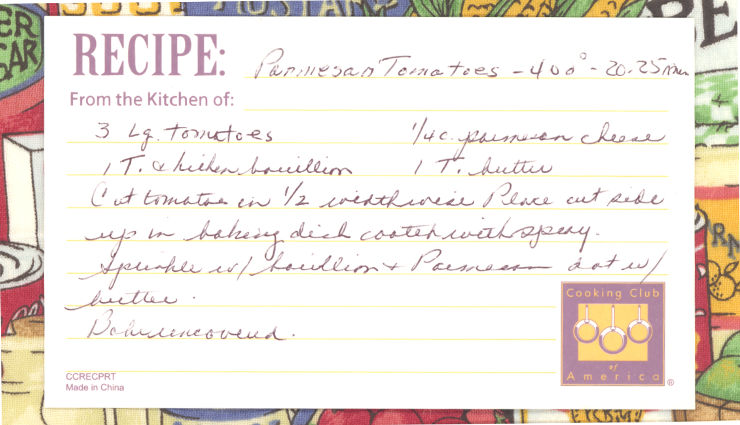 RECIPE: Parmesan Tomatoes - 400° - 20-25 min
From the Kitchen of:
3 Lg. tomatoes 1/4 c. parmesan cheese
1 T. chicken bouillion 1 T. butter
Cut tomatoes in 1/2 widthwise Place cut side
up in baking dish coated with spray.
Sprinkle w/ bouillion + Parmesan dot w/
butter.
Bake uncovered.
Cooking Club
of
America
®
CCRECPRT
Made in China